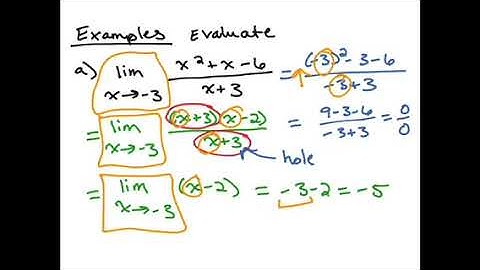 Examples Evaluate
a) lim x→-3 (x² + x - 6)/(x + 3) = ((-3)² - 3 - 6)/(-3 + 3)
= lim x→-3 ((x + 3)(x - 2))/(x + 3) = (9 - 3 - 6)/(-3 + 3) = 0/0
hole
= lim x→-3 (x - 2) = -3 - 2 = -5